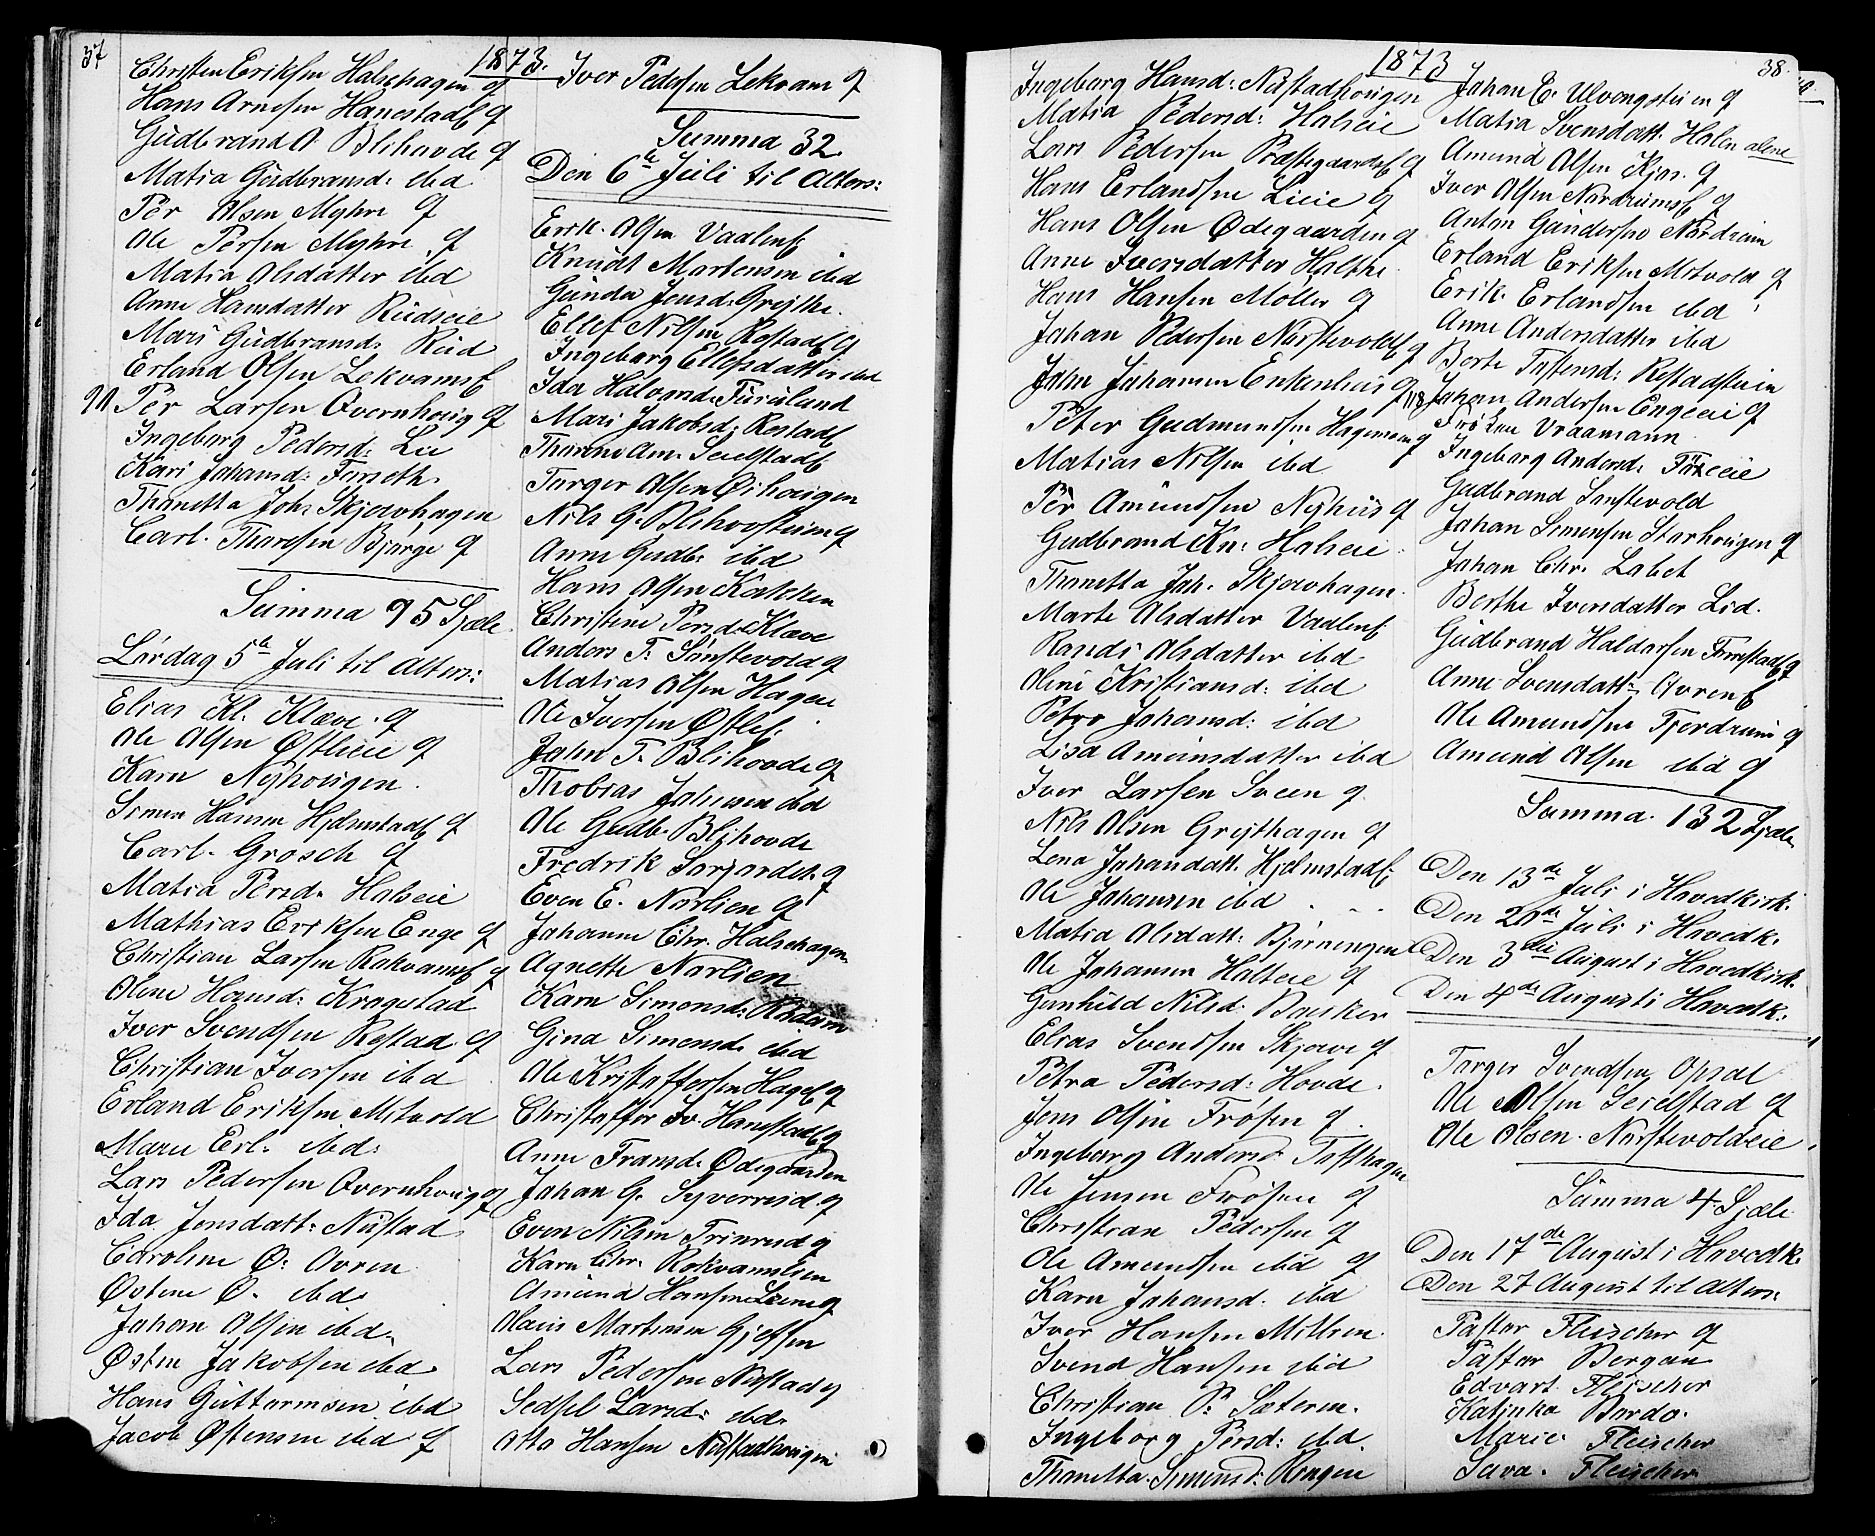 37
1873.
Christen Eriksen Halsehagen g
Hans Arnesen Hanestadb g
Gudbrand A. Blihovde g
Matia Gudbransd: ibd
Per Olsen Myhre g
Ole Persen Myhre g
Matia Olsdatter ibd
Anne Hansdatter Rudseie
Mari Gudbransd: Rud
Erland Olsen Lekvamsb
91 Per Larsen Overnhoug g
Ingeborg Pedersd: Lie
Kari Johansd: Furseth
Thonetta Joh: Skjævhagen
Carl Thoresen Bjørge g
Summa 95 Sjæle
Lørdag 5te Juli til Alters:
Elias Kl. Kleve. g
Ole Olsen Østlieie g
Karn Nyhougen.
Simen Hansen Hjelmstadb g
Carl. Grosch g
Matia Persd: Halseie
Mathias Eriksen Enge g
Christian Larsen Rakvamsb g
Oline Hansd: Krogstad
Iver Svendsen Rostad g
Christian Iversen ibd
Erland Eriksen Mitvold
Maru Erl: ibd:
Lars Pedersen Overnhoug g
Ida Jonsdatt: Nustad
Caroline Ø: Ovren
Østene Ø. ibd.
Johan Olsen ibd.
Østen Jakobsen ibd
Hans Guttormsen ibd
Jacob Østensen ibd g
Iver Pedersen Lekvam g
Summa 32
Den 6te Juli til Alters:
Erik Olsen Vaalenb
Knudt Mortensen ibd
Gunda Jensd: Grejthe.
Ellef Nilsen Rostadb g
Ingeborg Ellefsdatter ibd
Ida Halvorsd: Furuland
Mari Jakobsd: Rostadb
Thorine Am: Seielstadb
Torger Olsen Øihougen
Nils G. Blihovstuen g
Anne Gudb: ibd
Hans Olsen Kalcken
Christine Persd: Klæve
Anders T. Sønstevold g
Matias Olsen Hagen
Ole Iversen Østlib
John T. Blihovde g
Thobias Johnsen ibd
Ole Gudb: Blihovde
Fredrik Sorjordet. g
Even E. Norlien g
Johanne Chr. Halsehagen
Agnethe Norlien
Karn Simensd: Rudum
Gina Simensd: ibd
Ole Kristoffersen Hageb g
Christoffer Iv. Hanestadb g
Anne Fransd: Ødegaarden
Johan G. Syverrud g
Even Nilsen Frinrud g
Karn Chr: Rokvamslien
Amund Hansen Lien g
Olaus Martinsen Gjefsen
Lars Pedersen Nustad g
Sedsel Larsd: ibd.
Otto Hansen Nustadhougen
1873
38.
Ingeborg Hansd: Nustadhougen
Matia Pedersd: Halseie
Lars Pedersen Præstegaardsb g
Hans Erlandsen Lieie g
Hans Olsen Ødegaarden g
Anne Iversdatter Holthe
Hans Hansen Moller g
Johan Pedersen Norstevoldb g
John Johansen Enkenhus g
Peter Gudmundsen Hagemoen g
Matias Nilsen ibd
Per Amundsen Nyhus g
Gudbrand Kn: Halseie
Thonetta Joh. Skjævhagen.
Marte Olsdatter Vaalenb
Randi Olsdatter ibd
Oline Kristiansd: ibd
Petra Johansd: ibd
Lisa Amundsdatter ibd
Iver Larsen Sveen g
Nils Olsen Grejthagen g
Lena Johandatt. Hjelmstadb
Ole Johansen ibd
Matia Olsdatt: Bjørningen
Ole Johansen Holteie g
Gunhild Nilsd: Bæsker
Elias Svendsen Skjæve g
Petra Pedersd: Hovde.
Jens Olsen Frøsen g
Ingeborg Andersd Tofthagen
Ole Jensen Frøsen g
Christian Pedersen g
Ole Amundsen ibd g
Karn Johansd. ibd
Iver Hansen Millren
Svend Hansen ibd
Christian P. Sæteren.
Ingeborg Persd: ibd
Thonetta Simensd: Ringen
Johan E. Ulvengstuen g
Matia Svensdatt. Halen alene
Amund Olsen Kjos. g
Iver Olsen Nordrumsb g
Anton Gundersen Nordrum
Erland Eriksen Mitvold g
Erik Erlandsen ibd
Anne Andersdatter ibd
Berte Tostensd: Rostadstuen
118 Johan Andersen Engeeie g
Frøken Vraamann
Ingeborg Andersd: Foseeie
Gudbrand Sønstevold
Johan Simensen Storhougen g
Johan Chr. Labet
Berthe Iversdatter Lid.
Gudbrand Haldorsen Fonstadb g
Anne Svensdatt: Ovrenb
Ole Amundsen Fjordrum g
Amund Olsen ibd g
Summa 132 Sjæle
Den 13de Juli i Hovedkirk.
Den 20de Juli i Hovedk.
Den 3die August i Hovedkirk.
Den 4de August i Hovedk.
Torger Svendsen Opsal
Ole Olsen Seielstad g
Ole Olsen Norstevoldeie
Summa 4 Sjæle
Den 17de August i Hovedk.
Den 27 August til Alters:
Pastor Fleischer g
Pastor Bergan
Edvart Fleischer
Katinka Bordo.
Marie Fleischer
Sara Fleischer